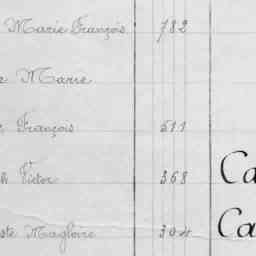 Marie François 782
Marie
François 511
Victor 368
Magloire
Ca
Ca